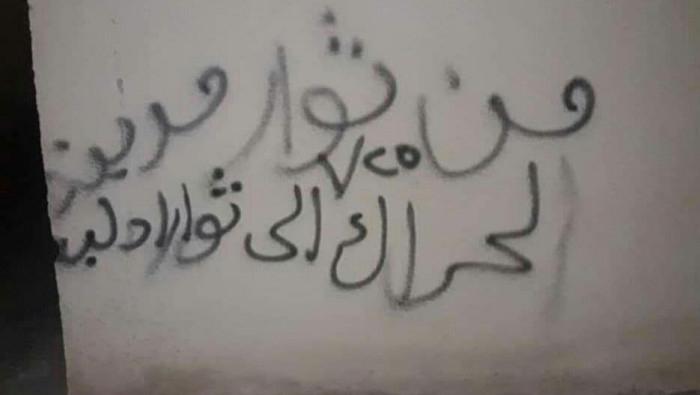 من ثوار مدينة
الحراك الى ثوار ادلب